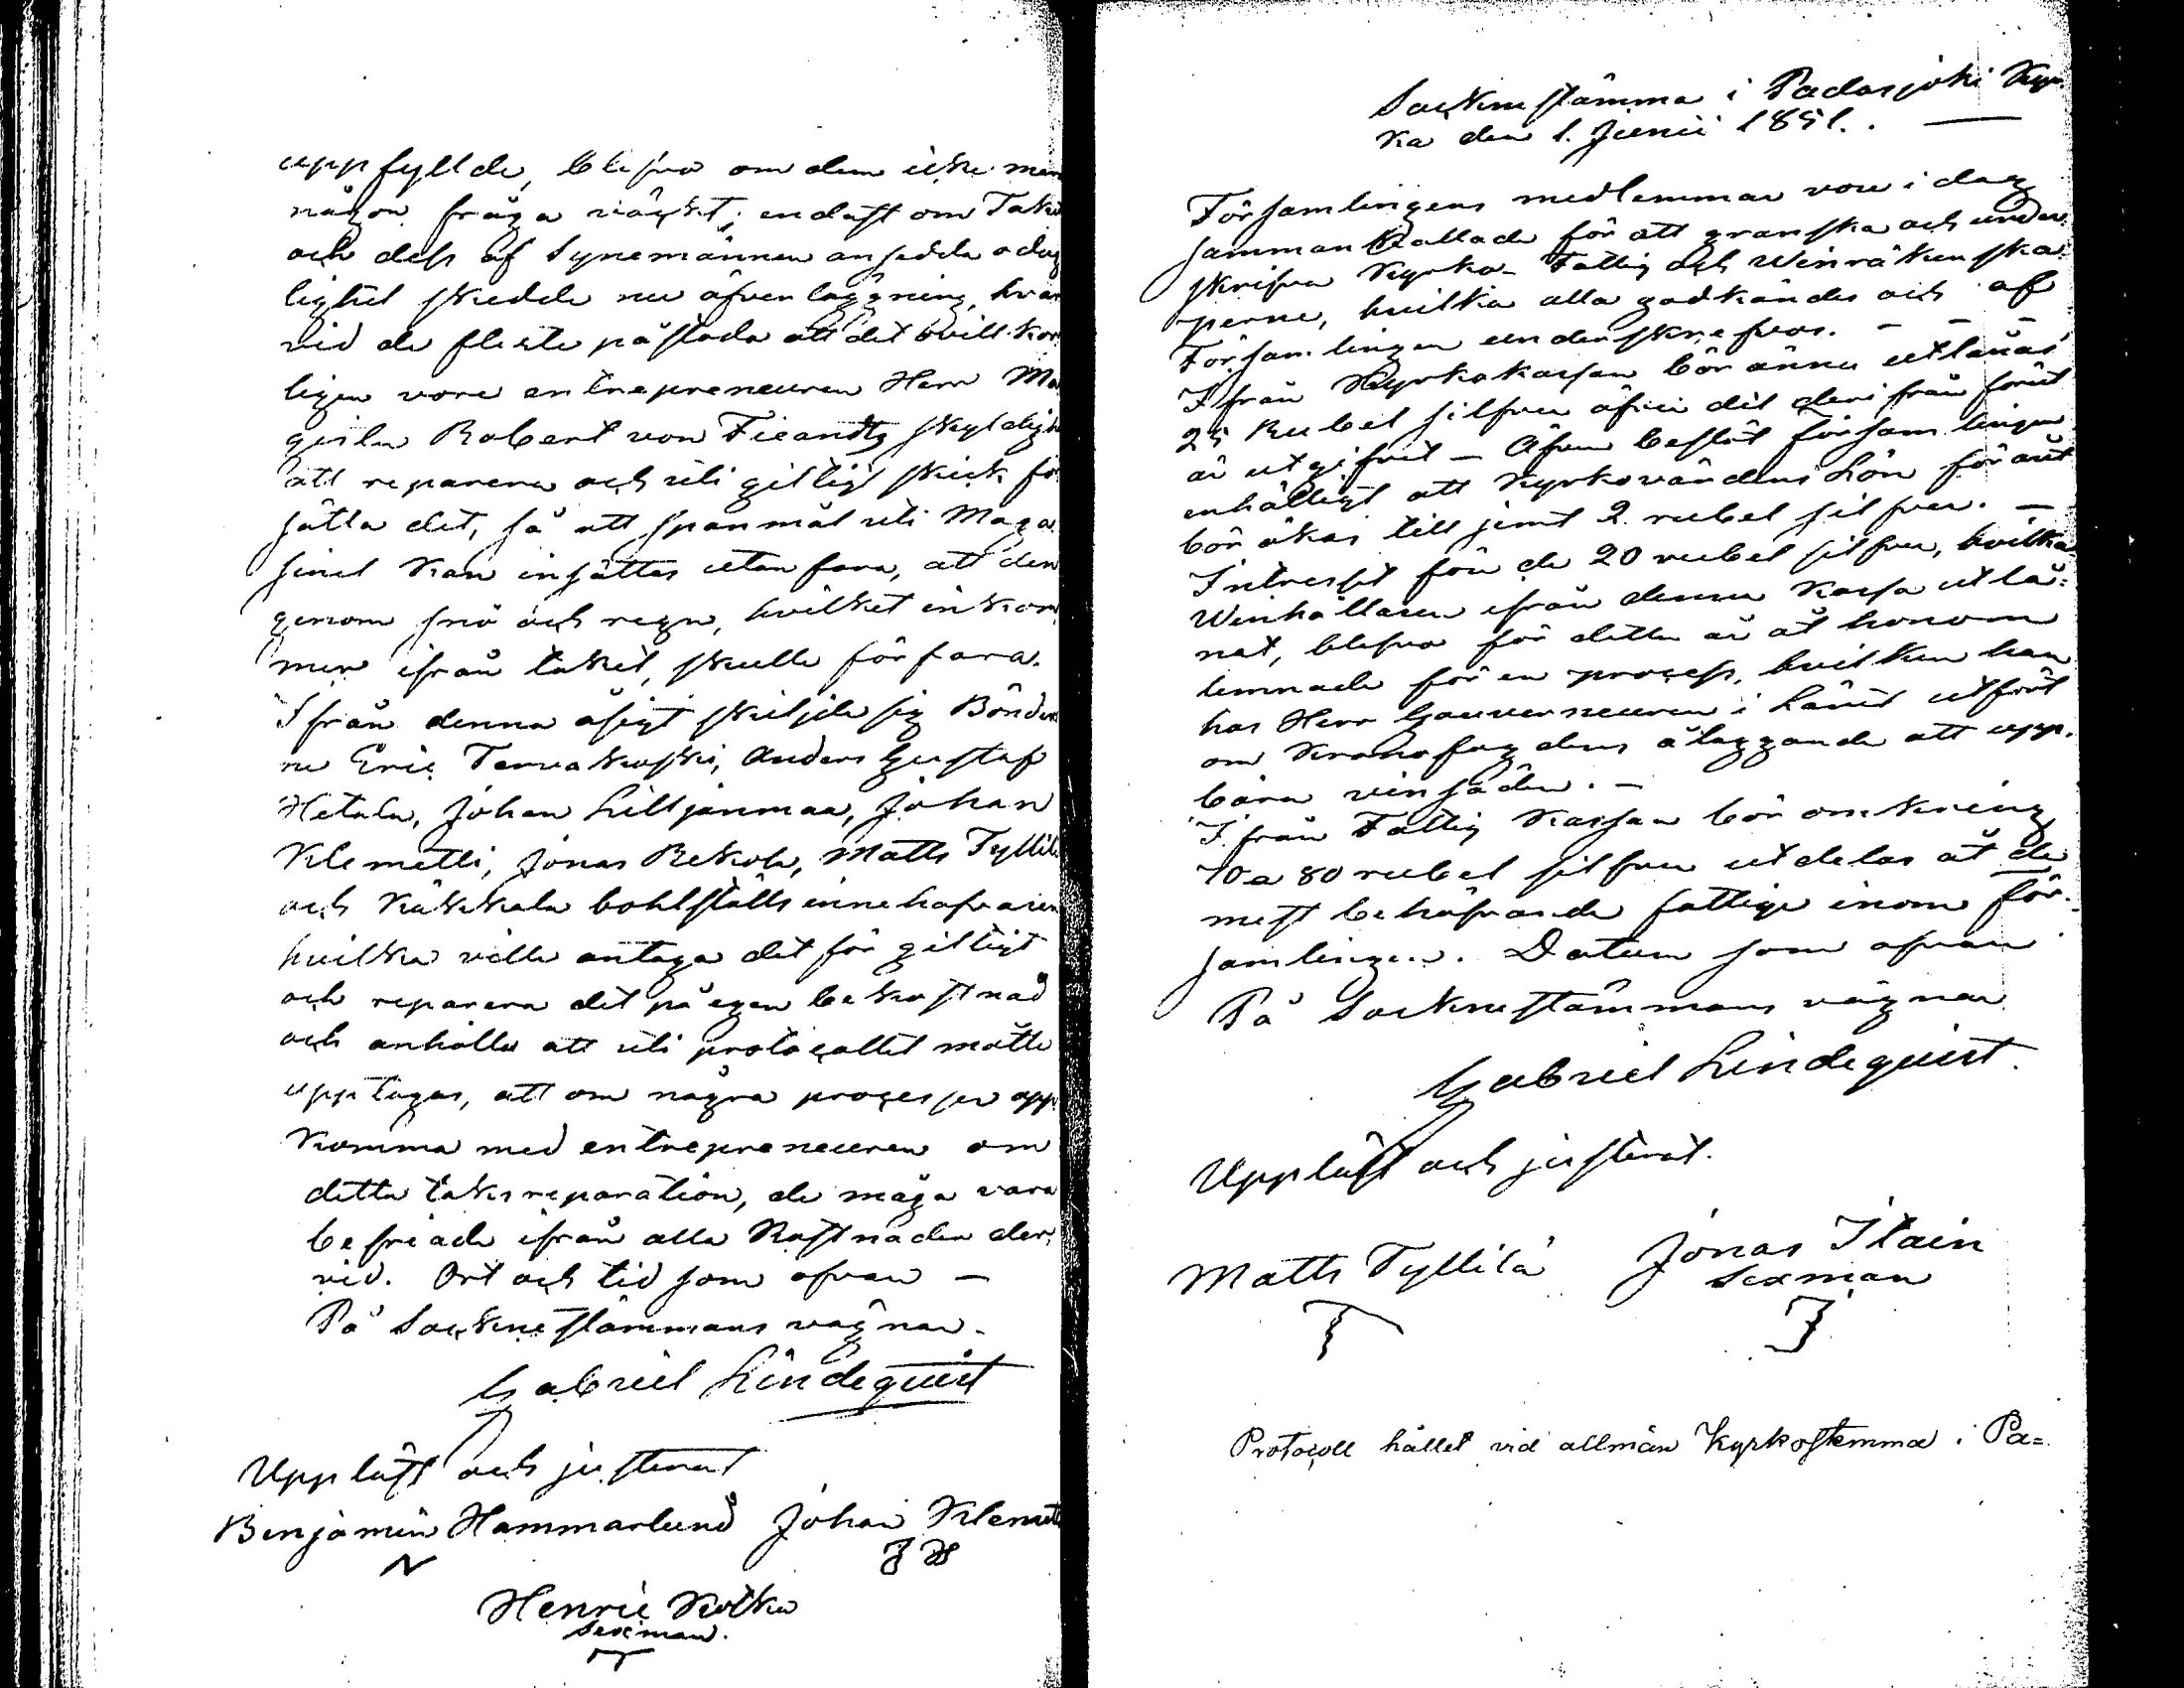 uppfyllde, blefvo om dem icke mera
någon fråga väckt; endast om Taket
och dess af Synemännen ansedda odug
lighet skedde nu öfverläggning, hvar
vid de fleste påstodo att det ovillkor
ligen vore entrepreneuren Herr Ma
gister Robert von Fieandts skyldighet
att reparera och uti giltigt skick för
sätta det, så att spanmål uti Maga
sinet kan insättas utan fara, att den
genom snö och regn, hvilket inkom
mer ifrån taket, skulle förfara.
Ifrån denna åsigt skiljde sig Bönder
ne Eric Tervakoski, Anders Gustaf
Hetala, Johan Lilljänmaa, Johan
Klemetti, Jonas Rekola, Matts Tyllilä
och Käkkälä bohlställs innehafvaren
hvilka ville antaga det för giltigt
och reparera det på egen bekostnad
och anhöllo att uti protocollet måtte
upptagas, att om några processer upp
komma med entrepreneuren om
detta taks reparation, de måga vara
befriade ifrån alla kostnader der
vid. Ort och tid som ofvan —
På Sockne stämmans vägnar.
Gabriel Lindequist
Uppläst och justerat
Benjamin Hammarlund Johan Klemetti
Henric Kotka
Sexman.
Sockne stämma i Padasjoki Kyr-
ka den 1. Junii 1851. —
Församlingens medlemmar voro i dag
sammankallade för att granska och under
skrifva Kyrko- Fattig och Winräkenska
perne, hvilka alla godkändes och af
Församlingen underskrefvos. — — —
Ifrån Kyrkokassan bör ännu utlånas
25 Rubel silfver öfver det derifrån förut
är utgifvet — Äfven beslöt församlingen
enhälligt att Kyrkovärdens Lön förut
bör ökas till jemt 2 rubel silfver. —
Intresset för de 20 rubel silfver, hvilka
Winhållaren ifrån denna Kassa utlå=
nat, blefvo för detta år åt honom
lemnade för en process, hvilken han
hos Herr Gouverneuren i Länet utfört
om Kronofogdens åläggande att upp.
bära vinsäden. —
Ifrån Fattig Kassan bör omkring
70 a 80 rubel silfver utdelas åt de
mest behöfvande fattige inom för=
samlingen. Datum som ofvan
På Sockne stämmans vägnar
Gabriel Lindequist.
Uppläst och justerat.
Matts Tyllilä Jonas Itain
Sexman
Protocoll hållet vid allmän Kyrkostemma i Pa=